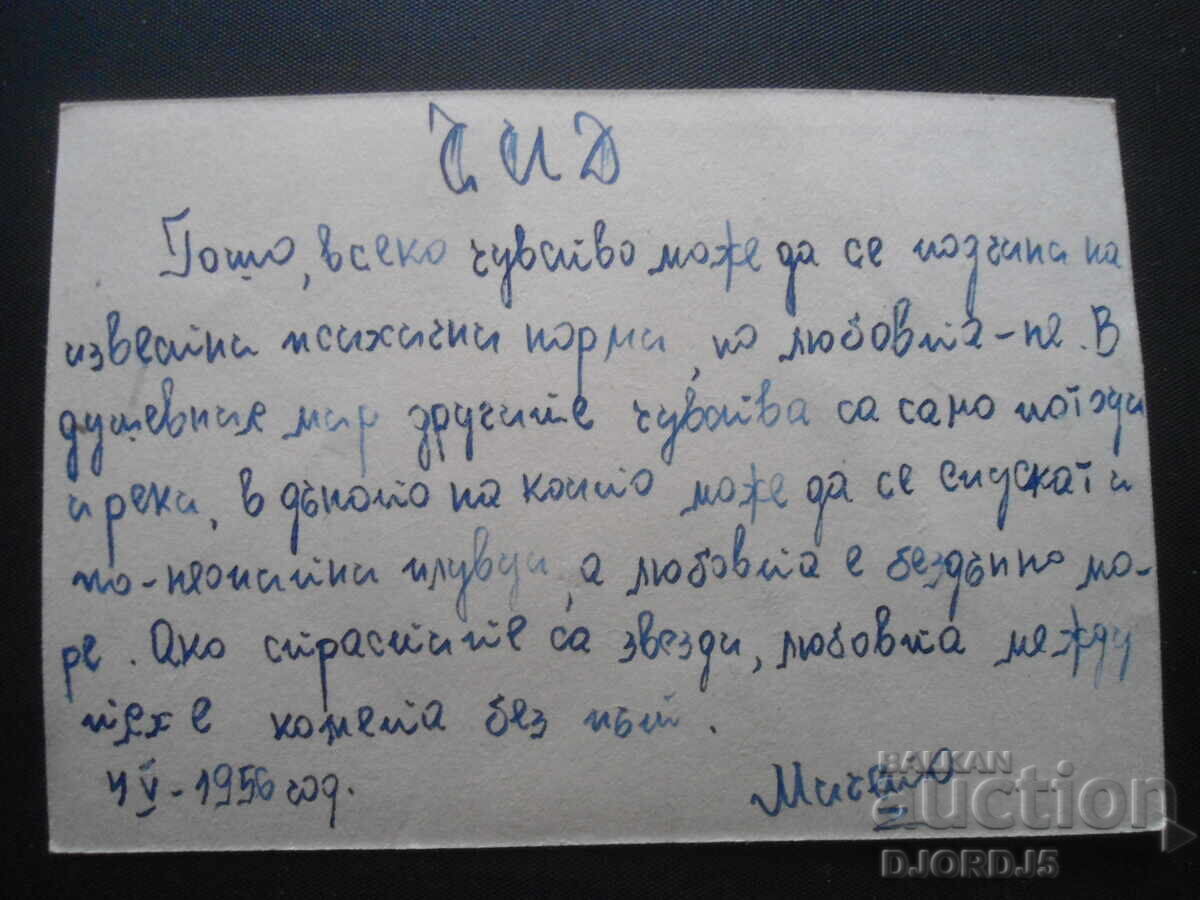 СИД
Гошо, всеко чувство може да се подчини на
известни психични норми, но любовта-не. В
душевния мир другите чувства са само потоци
и реки, в дъното на които може да се спускат и
по-неопитни плувци, а любовта е бездънно мо-
ре. Ако страстите са звезди, любовта между
тях е комета без път.
4 V-1956 год.
BALKAN
auction
DJORDJ5